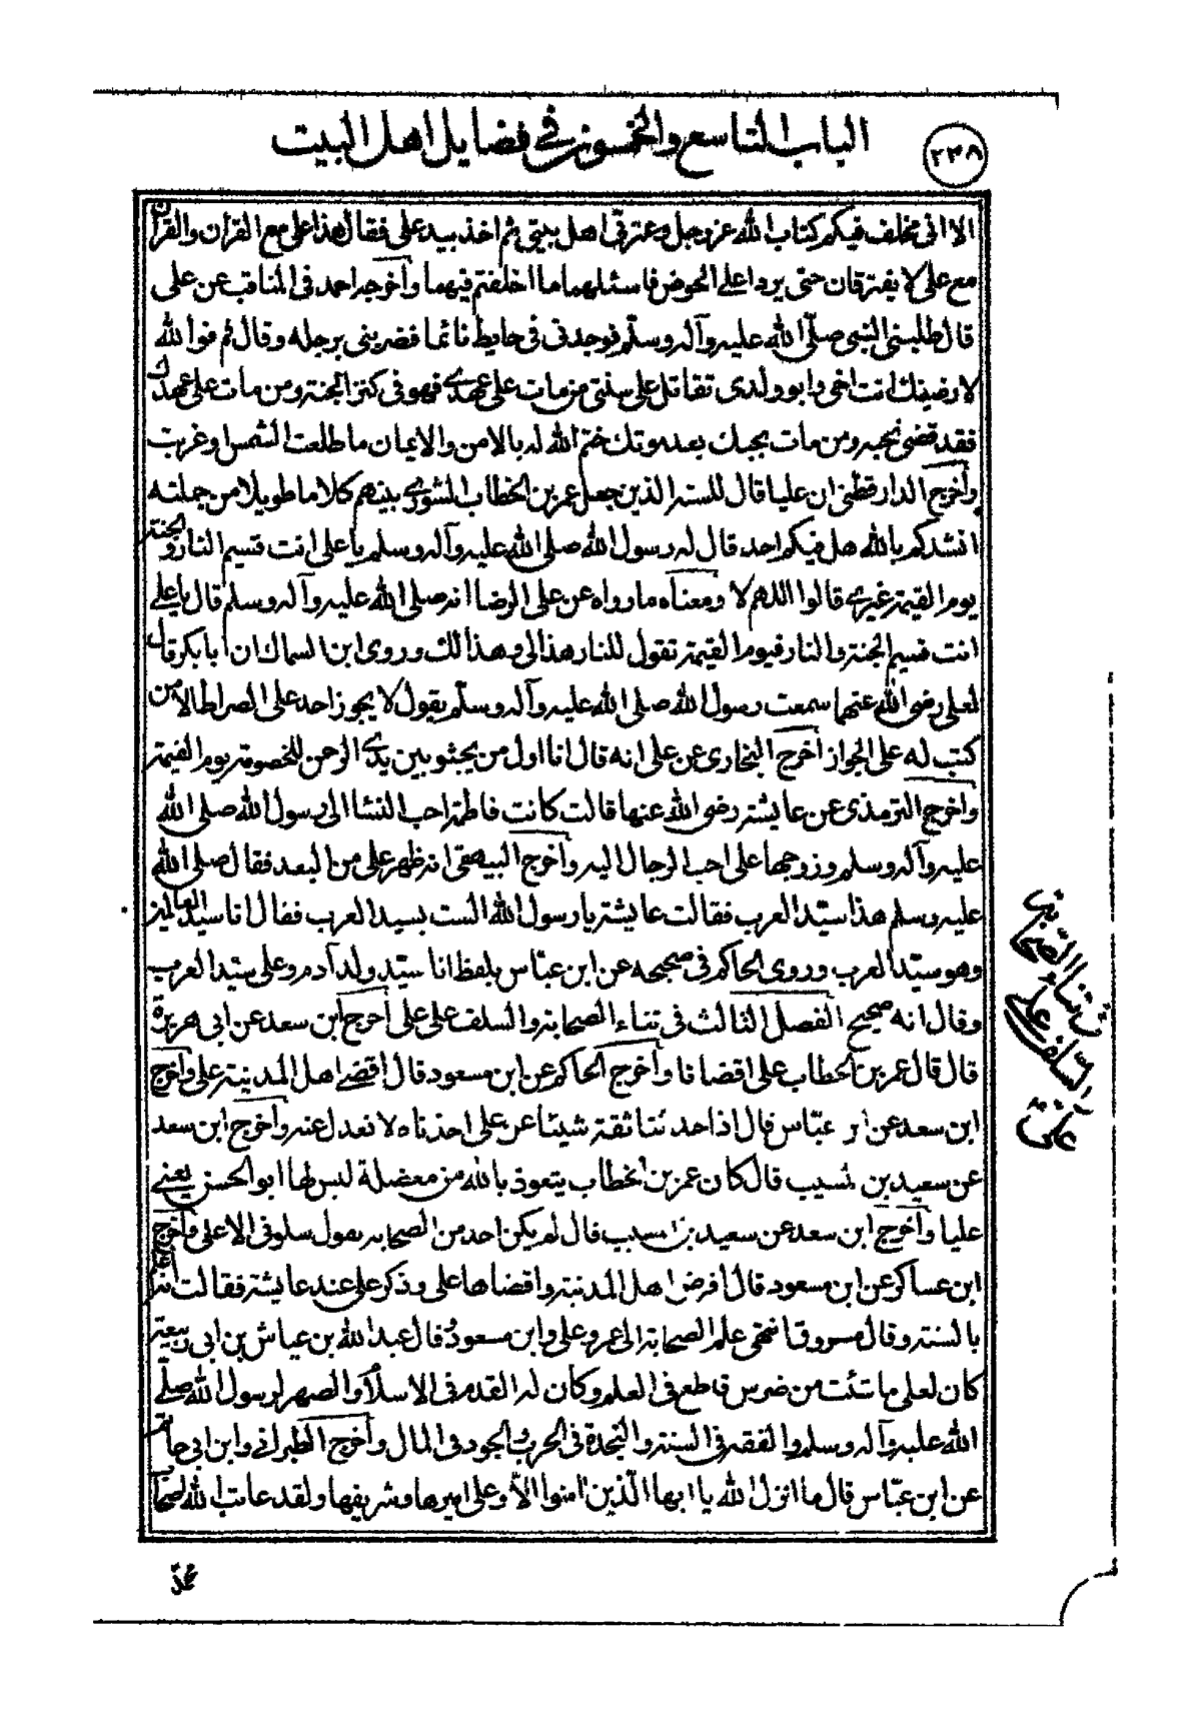 ٢٣٨
الباب التاسع والخمسون في فضايل اهل البيت
الا انى مخلف فيكم كتاب الله عز وجل وعترتى اهل بيتى ثم اخذ بيد على فقال هذا على مع القران والقران
مع على لا يفترقان حتى يردا على الحوض فاسئلهما ما اخلفتم فيهما وأخرج احمد فى المناقب عن على
قال طلبنى النبى صلى الله عليه وآله وسلم فوجدنى فى حايط نائما فضربنى برجله وقال قم فوالله
لارضينك انت اخى وابو ولدى تقاتل على سنتى من مات على عهدى فهو فى كنز الجنة ومن مات على عهدك
فقد قضى نحبه ومن مات يحبك بعد موتك ختم الله له بالامن والايمان ما طلعت الشمس او غربت
وأخرج الدارقطنى ان عليا قال للستة الذين جعل عمر بن الخطاب الشورى بينهم كلاما طويلا من جملته
انشدكم بالله هل فيكم احد قال له رسول الله صلى الله عليه وآله وسلم يا على انت قسيم النار والجنة
يوم القيمة غيرى قالوا اللهم لا ومعناه ما رواه عن على الرضا انه صلى الله عليه وآله وسلم قال يا على
انت قسيم الجنة والنار فيوم القيمة تقول للنار هذا لى وهذا لك وروى ابن السماك ان ابا بكر قال
لعلى رضى الله عنهما سمعت رسول الله صلى الله عليه وآله وسلم يقول لا يجوز احد على الصراط الا من
كتب له على الجواز أخرج البخارى عن على انه قال انا اول من يجثو بين يدى الرحمن للخصومة يوم القيمة
وأخرج الترمذى عن عايشة رضى الله عنها قالت كانت فاطمة احب النسا الى رسول الله صلى الله
عليه وآله وسلم وزوجها على احب الرجال اليه وأخرج البيهقى انه ظهر على من البعد فقال صلى الله
عليه وسلم هذا سيد العرب فقالت عايشة يا رسول الله الست بسيد العرب فقال انا سيد العالمين
وهو سيد العرب وروى الحاكم فى صحيحه عن ابن عباس بلفظ انا سيد ولد آدم وعلى سيد العرب
وقال انه صحيح الفصل الثالث فى ثناء الصحابة والسلف على على أخرج ابن سعد عن ابى هريرة
قال قال عمر بن الخطاب على اقضانا وأخرج الحاكم عن ابن مسعود قال اقضى اهل المدينة على وأخرج
ابن سعد عن ابن عباس قال اذا حدثنا ثقة شيئا عن على اخذناه لا نعدل عنه وأخرج ابن سعد
عن سعيد بن لمسيب قال كان عمر بن الخطاب يتعوذ بالله من معضلة ليس لها ابو الحسن يعنى
عليا وأخرج ابن سعد عن سعيد بن مسيب قال لم يكن احد من الصحابة يقول سلونى الا على وأخرج
ابن عساكر عن ابن مسعود قال افرض اهل المدينة واقضاها على وذكر على عند عايشة فقالت انه اعلم
بالسنة وقال مسروق انتهى علم الصحابة الى عمر وعلى وابن مسعود وقال عبد الله بن عياش بن ابى ربيعة
كان لعلى ما شئت من ضرس قاطع فى العلم وكان له القدم فى الاسلام والصهر لرسول الله صلى
الله عليه وآله وسلم والفقه فى السنة والنجدة فى الحرب والجود فى المال وأخرج الطبرانى وابن ابى حاتم
عن ابن عباس قال ما انزل الله يا ايها الذين امنوا الا وعلى اميرها وشريفها ولقد عاتب الله اصحاب
ثناء الصحابة
والسلف على
على
محمد